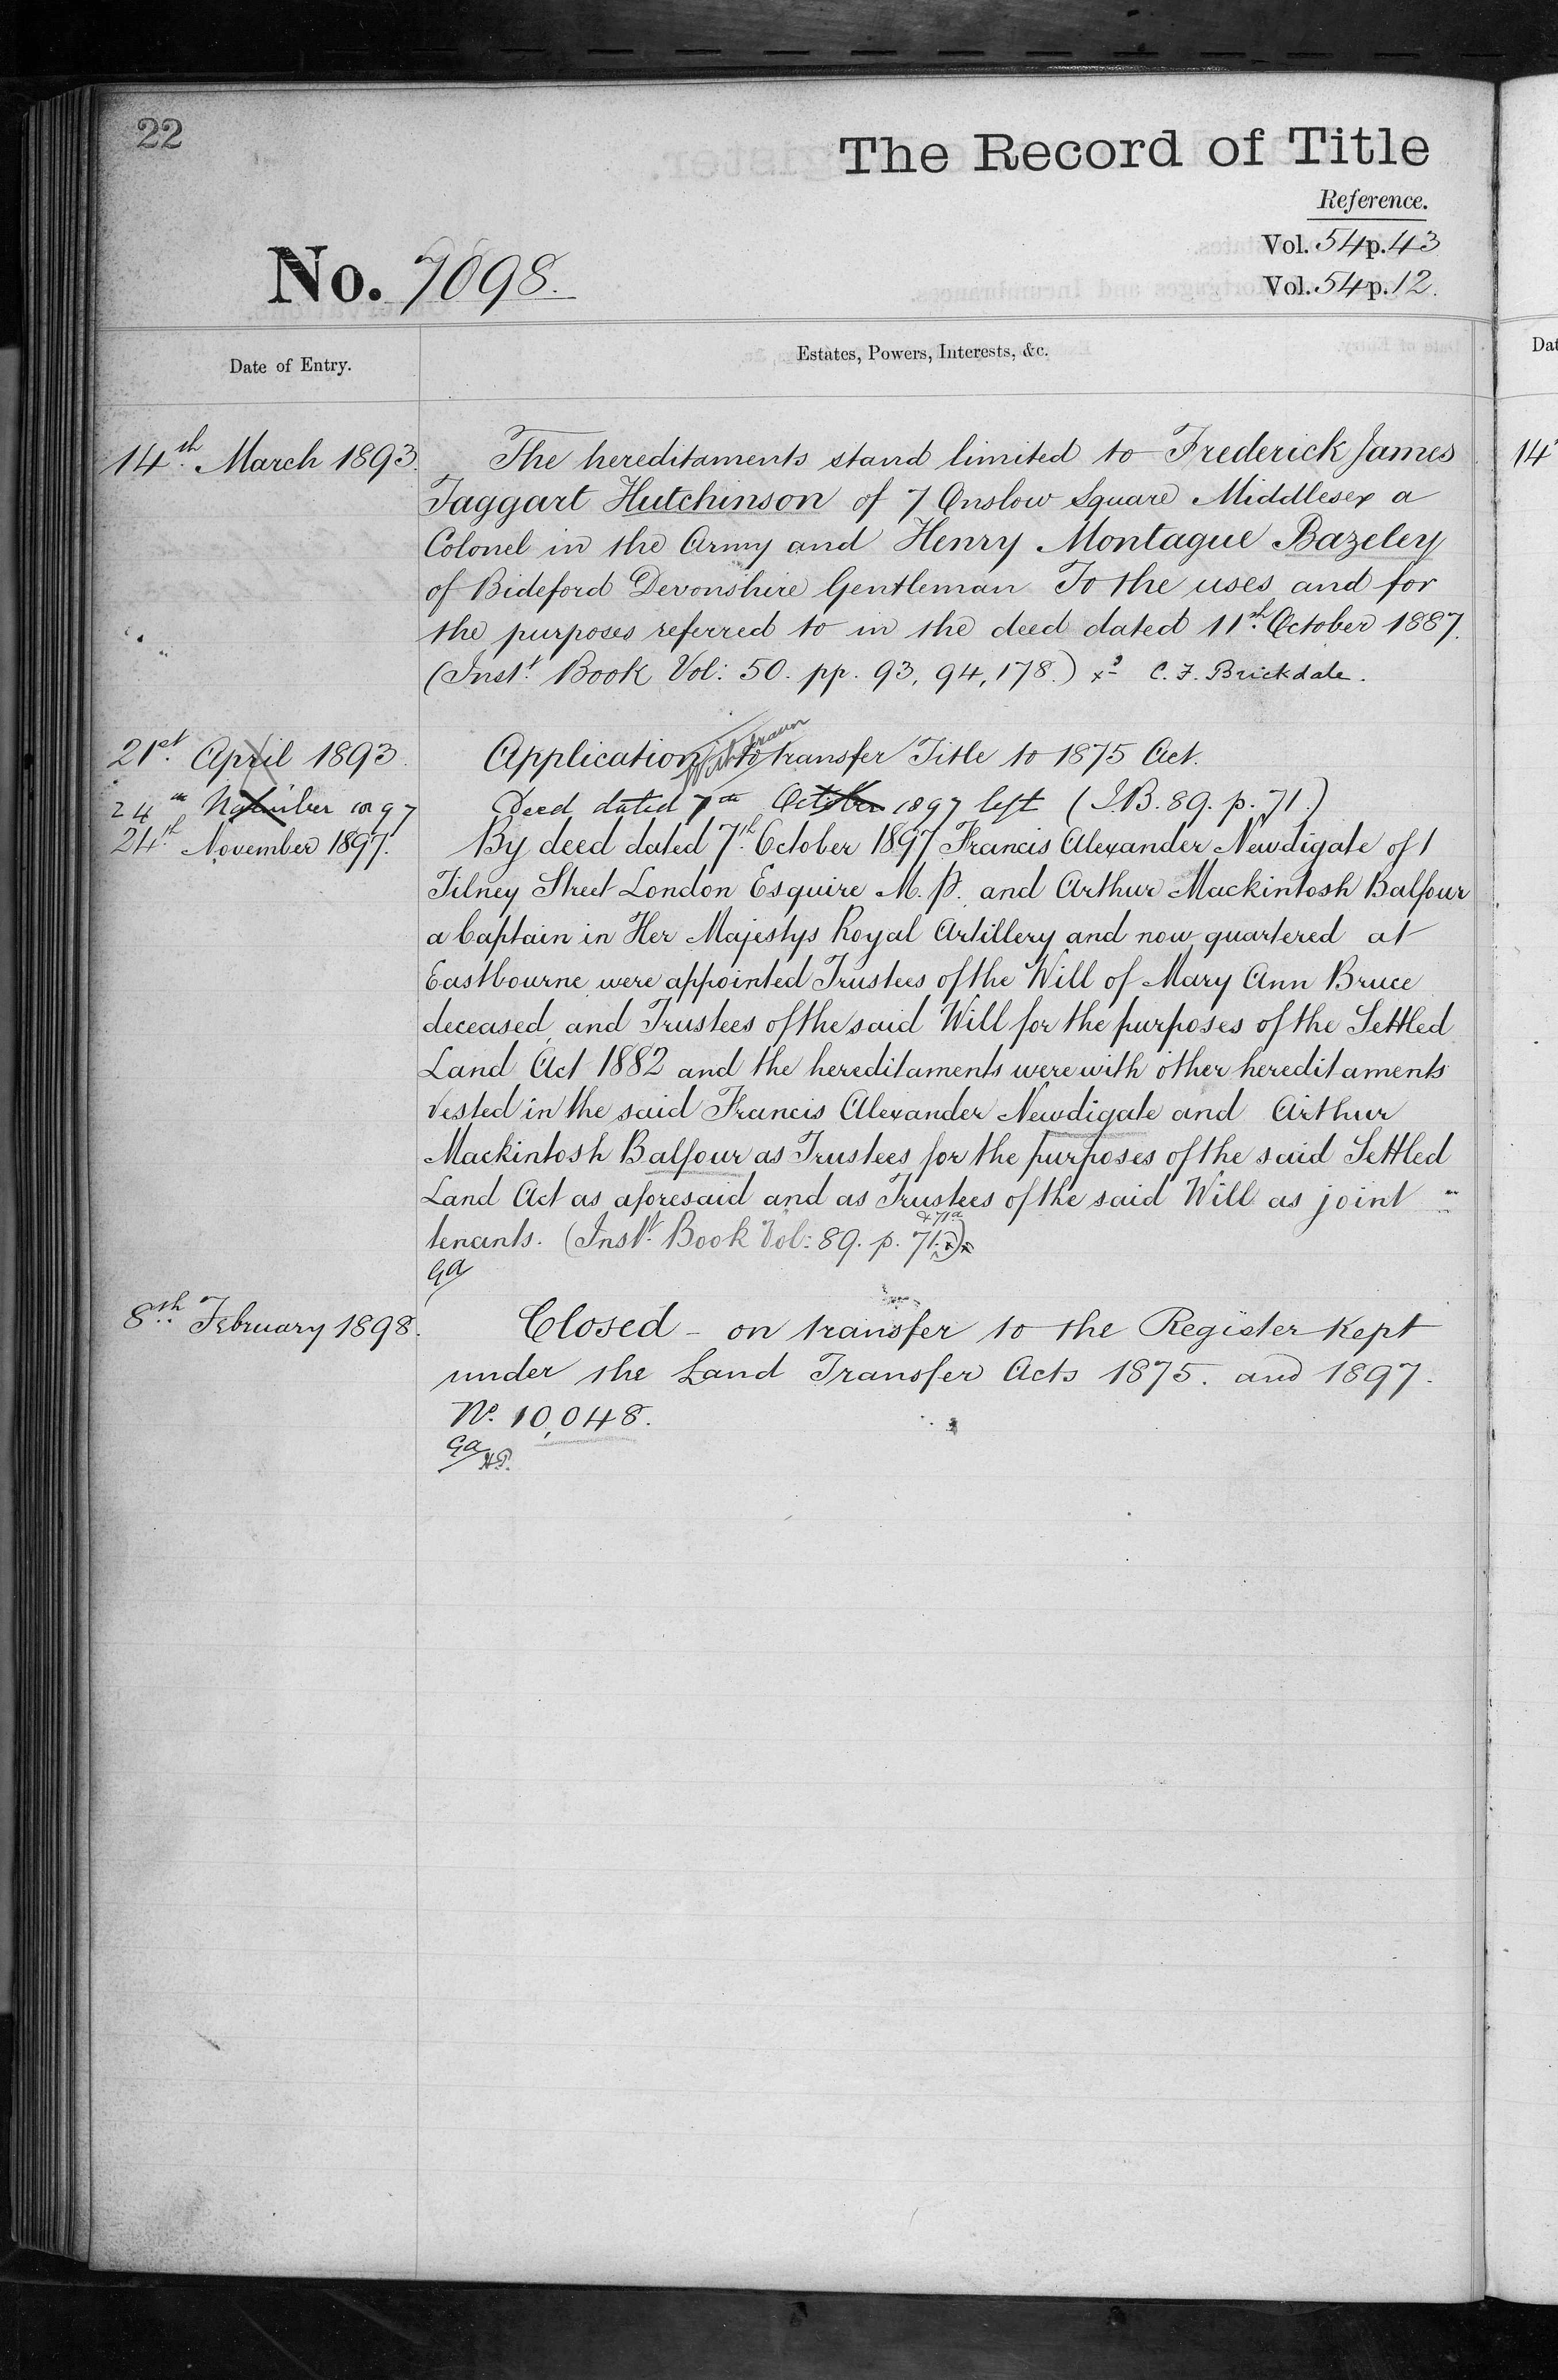 22
The Record of Title
Reference.
Vol. 54 p. 43
Vol. 54 p. 12.
No. 7098.
Date of Entry.
Estates, Powers, Interests, &c.
14th March 1893.
The hereditaments stand limited to Frederick James
Taggart Hutchinson of 7 Onslow Square Middlesex a
Colonel in the Army and Henry Montague Bazeley
of Bideford Devonshire Gentleman To the uses and for
the purposes referred to in the deed dated 11th October 1887.
(Inst. Book Vol: 50. pp. 93, 94, 178.) C. F. Brickdale.
21st April 1893.
Application to transfer Title to 1875 Act.
Withdrawn
24th November 1897
Deed dated 7th October 1897 left (I.B. 89. p. 71.)
24th November 1897.
By deed dated 7th October 1897 Francis Alexander Newdigate of 1
Tilney Street London Esquire M.P. and Arthur Mackintosh Balfour
a Captain in Her Majestys Royal Artillery and now quartered at
Eastbourne were appointed Trustees of the Will of Mary Ann Bruce
deceased, and Trustees of the said Will for the purposes of the Settled
Land Act 1882 and the hereditaments were with other hereditaments
vested in the said Francis Alexander Newdigate and Arthur
Mackintosh Balfour as Trustees for the purposes of the said Settled
Land Act as aforesaid and as Trustees of the said Will as joint
tenants. (Inst. Book Vol: 89. p. 71. & 71a)
GA
8th February 1898.
Closed - on transfer to the Register kept
under the Land Transfer Acts 1875. and 1897.
No. 10,048.
GA
Dat
14